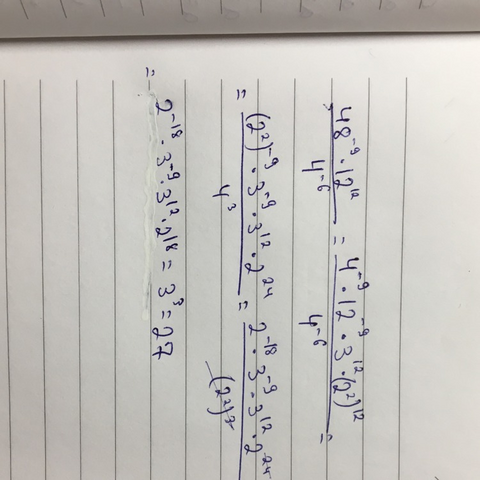 48⁻⁹ · 12¹² / 4⁻⁶ = 4⁻⁹ · 12⁻⁹ · 3¹² · (2²)¹² / 4⁻⁶ =
= (2²)⁻⁹ · 3⁻⁹ · 3¹² · 2²⁴ / 4³ = 2⁻¹⁸ · 3⁻⁹ · 3¹² · 2²⁴ / (2²)³
= 2⁻¹⁸ · 3⁻⁹ · 3¹² · 2¹⁸ = 3³ = 27